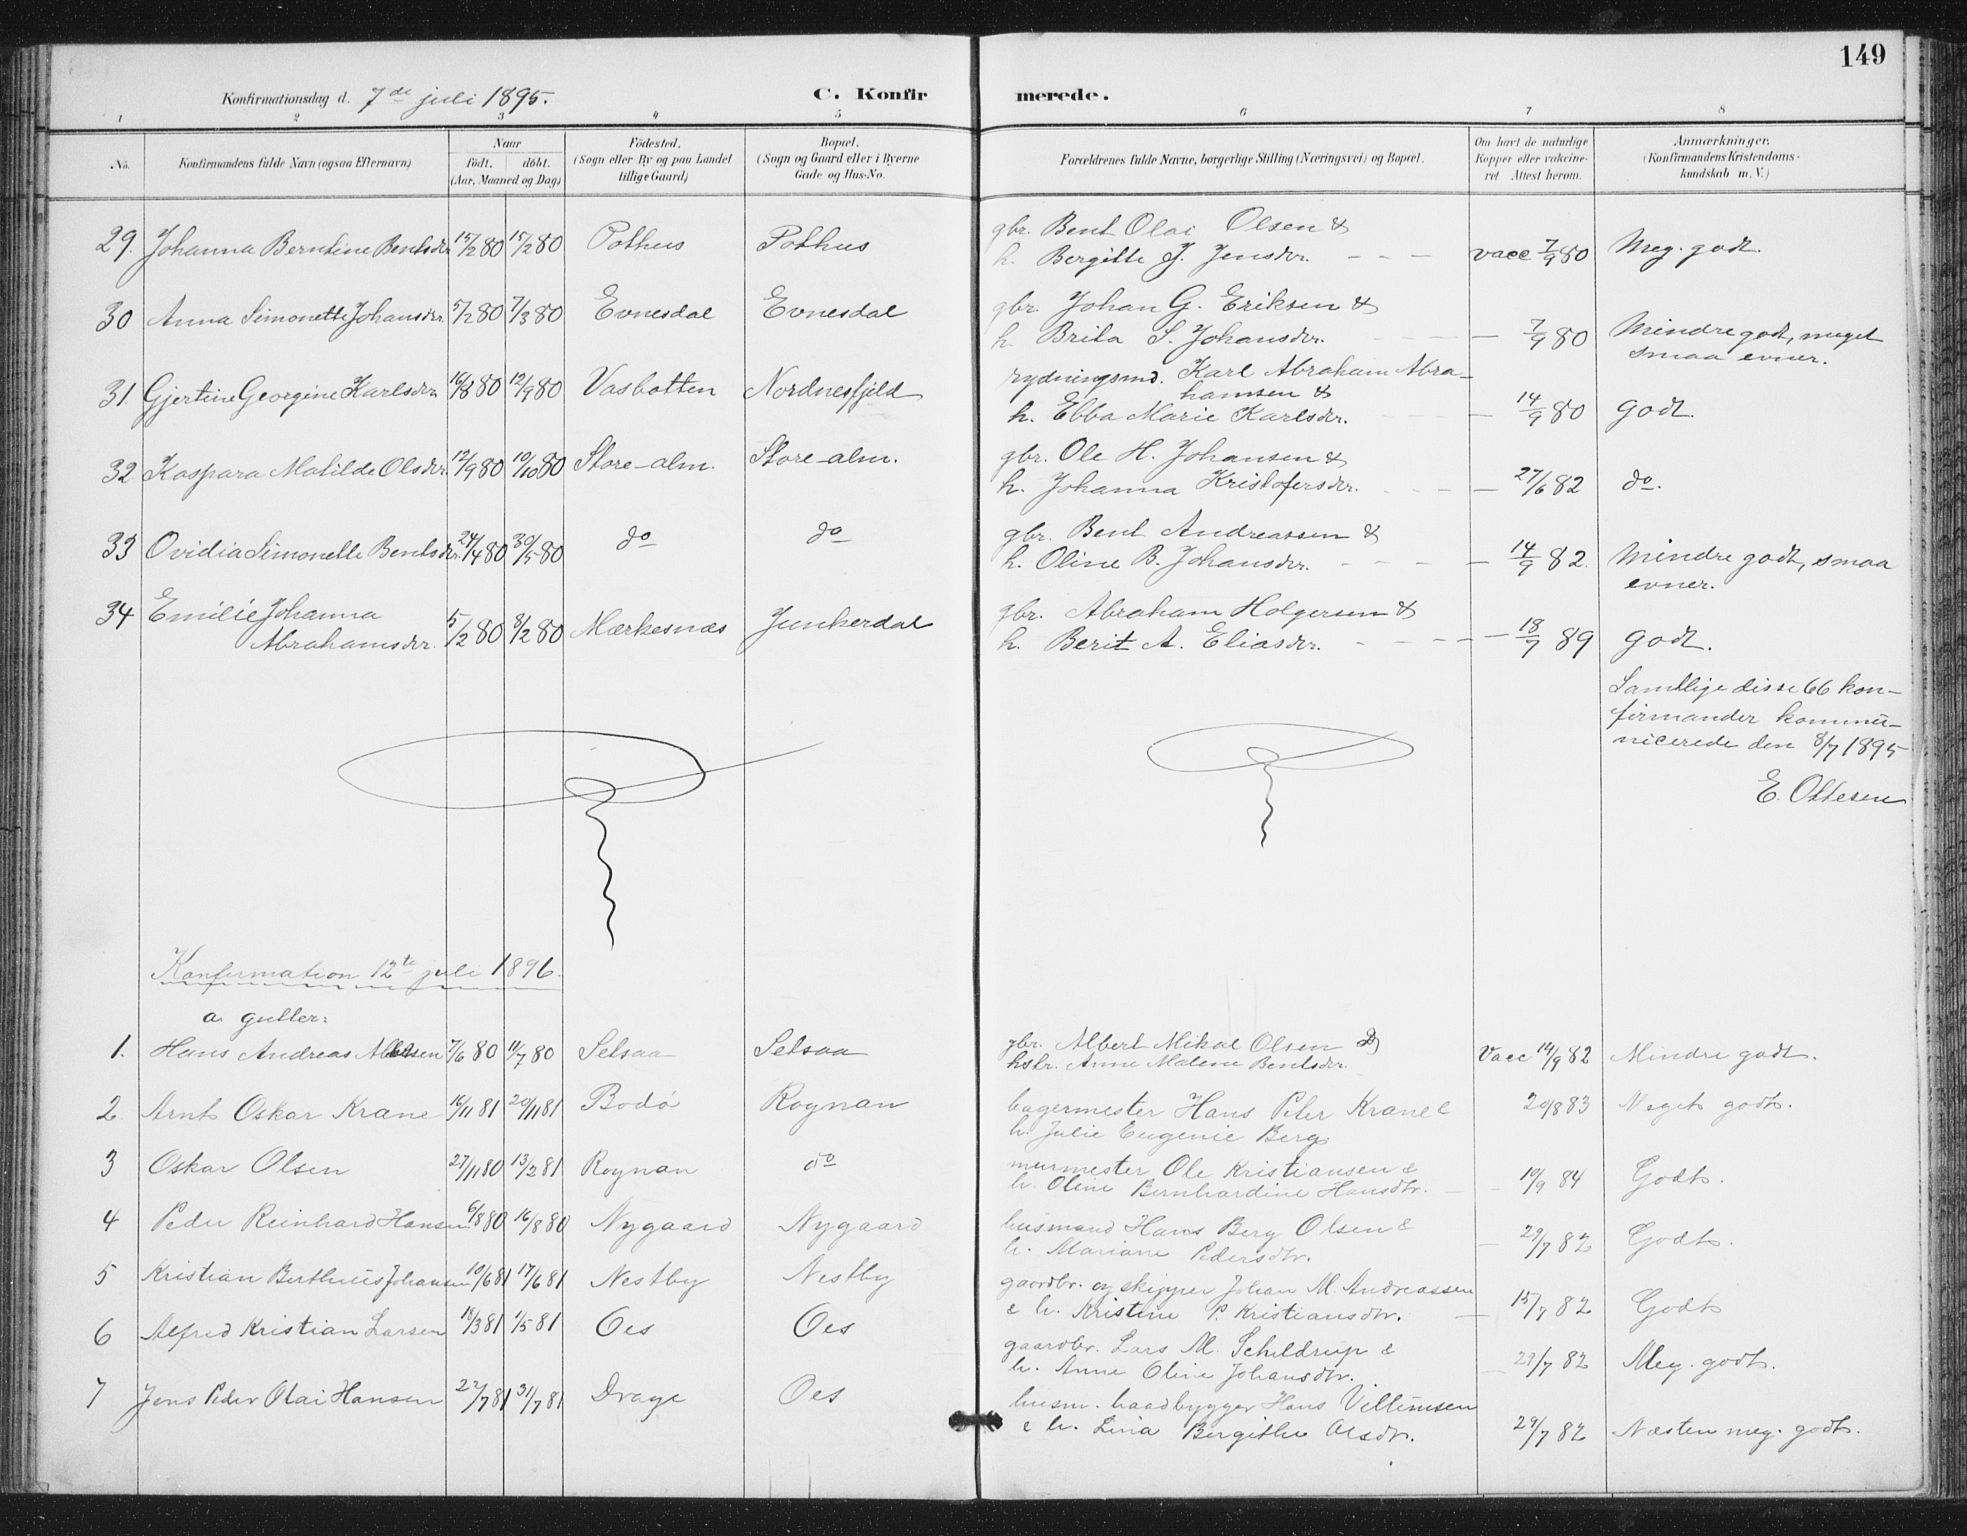 149
Konfirmationsdag d. 7de juli 1895. C. Konfirmerede.
1 2 3 4 5 6 7 8
No. Konfirmandens fulde Navn (ogsaa Efternavn). Naar födt. döbt. (Aar, Maaned og Dag) Födested. (Sogn eller By og paa Landet tillige Gaard) Bopæl. (Sogn og Gaard eller i Byerne Gade og Hus-No. Forældrenes fulde Navne, borgerlige Stilling (Næringsvei) og Bopæl. Om havt de naturlige Kopper eller vakcineret Attest herom. Anmærkninger. (Konfirmandens Kristendomskundskab m. V.)
29. Johanna Berntine Bentsdr. 15/2 80 15/2 80 Pothus Pothus gbr. Bent Olai Olsen &
h. Bergitte J. Jensdr. - - - vacc 7/9 80 Meg. godt.
30 Anna Simonette Johansdr. 5/2 80 7/3 80 Evnesdal Evnesdal gbr. Johan G. Eriksen &
h. Brita S. Johansdr. - 7/9 80 Mindre godt, meget
smaa evner.
31. Gjertine Georgine Karlsdr. 16/8 80 12/9 80 Vasbotten Nordnesfjeld rydningsmd. Karl Abraham Abra-
hamsen &
h. Ebba Marie Karlsdr. - 14/9 80 godt.
32 Kaspara Matilde Olsdr. 12/9 80 10/10 80 Store-alm. Store-alm. gbr. Ole H. Johansen &
h. Johanna Kristofersdr. - 27/6 82 do.
33 Ovidia Simonette Bentsdr. 24/4 80 30/5 80 do do gbr. Bent Andreassen &
h. Oline B. Johansdr. - 14/9 82. Mindre godt, smaa
evner.
34 Emilie Johanna
Abrahamsdr. 5/2 80 8/2 80 Mærkesnæs Junkerdal gbr. Abraham Holgersen &
h. Berit A. Eliasdr. - 18/7 89 godt.
Samtlige disse 66 kon-
firmander kommu-
nicerede den 8/7 1895
E. Ottesen
Konfirmation 12te juli 1896.
a. gutter:
1. Hans Andreas 7/6 80 11/7 80 Setsaa Setsaa gbr. Albert Mikal Olsen &
hstr. Anne Malene Bentsdr. Vacc 14/9 82 Mindre godt.
2. Arnt Oskar Krane 16/11 81 20/11 81 Bodö Rognan bagermester Hans Peter Krane &
h. Julie Eugenie Berg. 20/8 83 Meget godt.
3 Oskar Olsen 27/11 80 13/2 81 Rognan do murmester Ole Kristiansen &
h. Oline Bernhardine Hansdtr. - 10/9 84 Godt.
4 Peder Reinhard Hansen 6/8 80 16/8 80 Nygaard Nygaard husmand Hans Berg Olsen &
h. Mariane Pedersdtr. - 29/7 82 Godt.
5 Kristian Berthius Johansen 10/6 81 17/6 81 Nestby Nestby gaardbr. og skipper Johan M. Andreassen
& h. Kristine P. Kristiansdtr. - 15/7 82 Godt
6 Alfred Kristian Larsen 18/3 81 1/5 81 Oes Oes gaardbr. Lars M. Schildrup &
h. Anne Oline Johansdtr. 29/7 82 Meg. godt.
7 Jens Peder Olai Hansen 22/7 81 31/7 81 Drage Oes husm. baadbygger Hans Villumsen
& h. Lina Bergithe Olsdtr. 29/7 82 Næsten meg. godt.